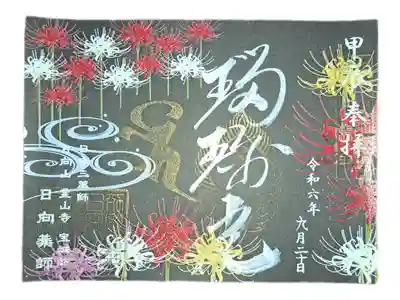 甲辰奉拝
令和六年
九月二十日
瑠璃光
日本三薬師
日向山霊山寺 宝城坊
日向薬師